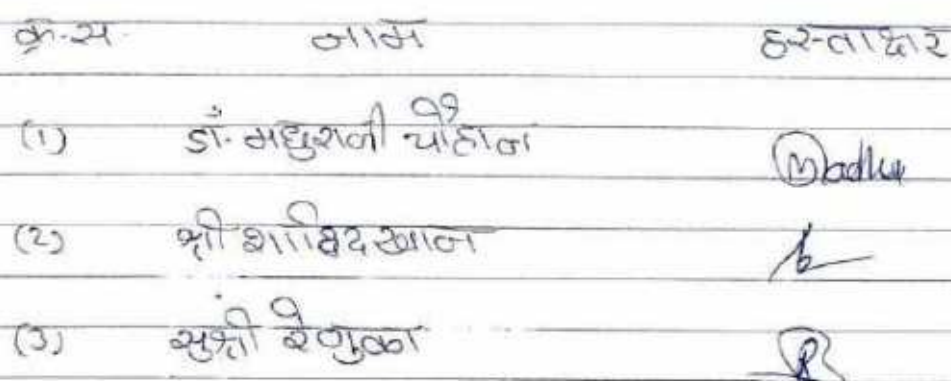 क्र.सं. नाम हस्ताक्षर
(1) डॉ. मधुरानी चौहान Madhu
(2) श्री शाहिद खान
(3) सुश्री रेणुका